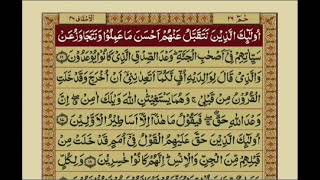 الاحقاف ٤٦
حٰمٓ ٢٦
أُولٰٓئِكَ الَّذِينَ نَتَقَبَّلُ عَنْهُمْ أَحْسَنَ مَا عَمِلُوا وَنَتَجَاوَزُ عَنْ
سَيِّاٰتِهِمْ فِىٓ أَصْحٰبِ الْجَنَّةِ وَعْدَ الصِّدْقِ الَّذِى كَانُوا يُوعَدُونَ ﴿١٦﴾
وَالَّذِى قَالَ لِوَالِدَيْهِ أُفٍّ لَّكُمَآ أَتَعِدٰنِنِىٓ أَنْ أُخْرَجَ وَقَدْ خَلَتِ
الْقُرُونُ مِنْ قَبْلِى وَهُمَا يَسْتَغِيثٰنِ اللّٰهَ وَيْلَكَ اٰمِنْ إِنَّ
وَعْدَ اللّٰهِ حَقٌّ فَيَقُولُ مَا هٰذَآ إِلَّآ أَسَاطِيرُ الْأَوَّلِينَ ﴿١٧﴾
أُولٰٓئِكَ الَّذِينَ حَقَّ عَلَيْهِمُ الْقَوْلُ فِىٓ أُمَمٍ قَدْ خَلَتْ مِنْ
قَبْلِهِمْ مِّنَ الْجِنِّ وَالْإِنْسِ إِنَّهُمْ كَانُوا خٰسِرِينَ ﴿١٨﴾ وَلِكُلٍّ